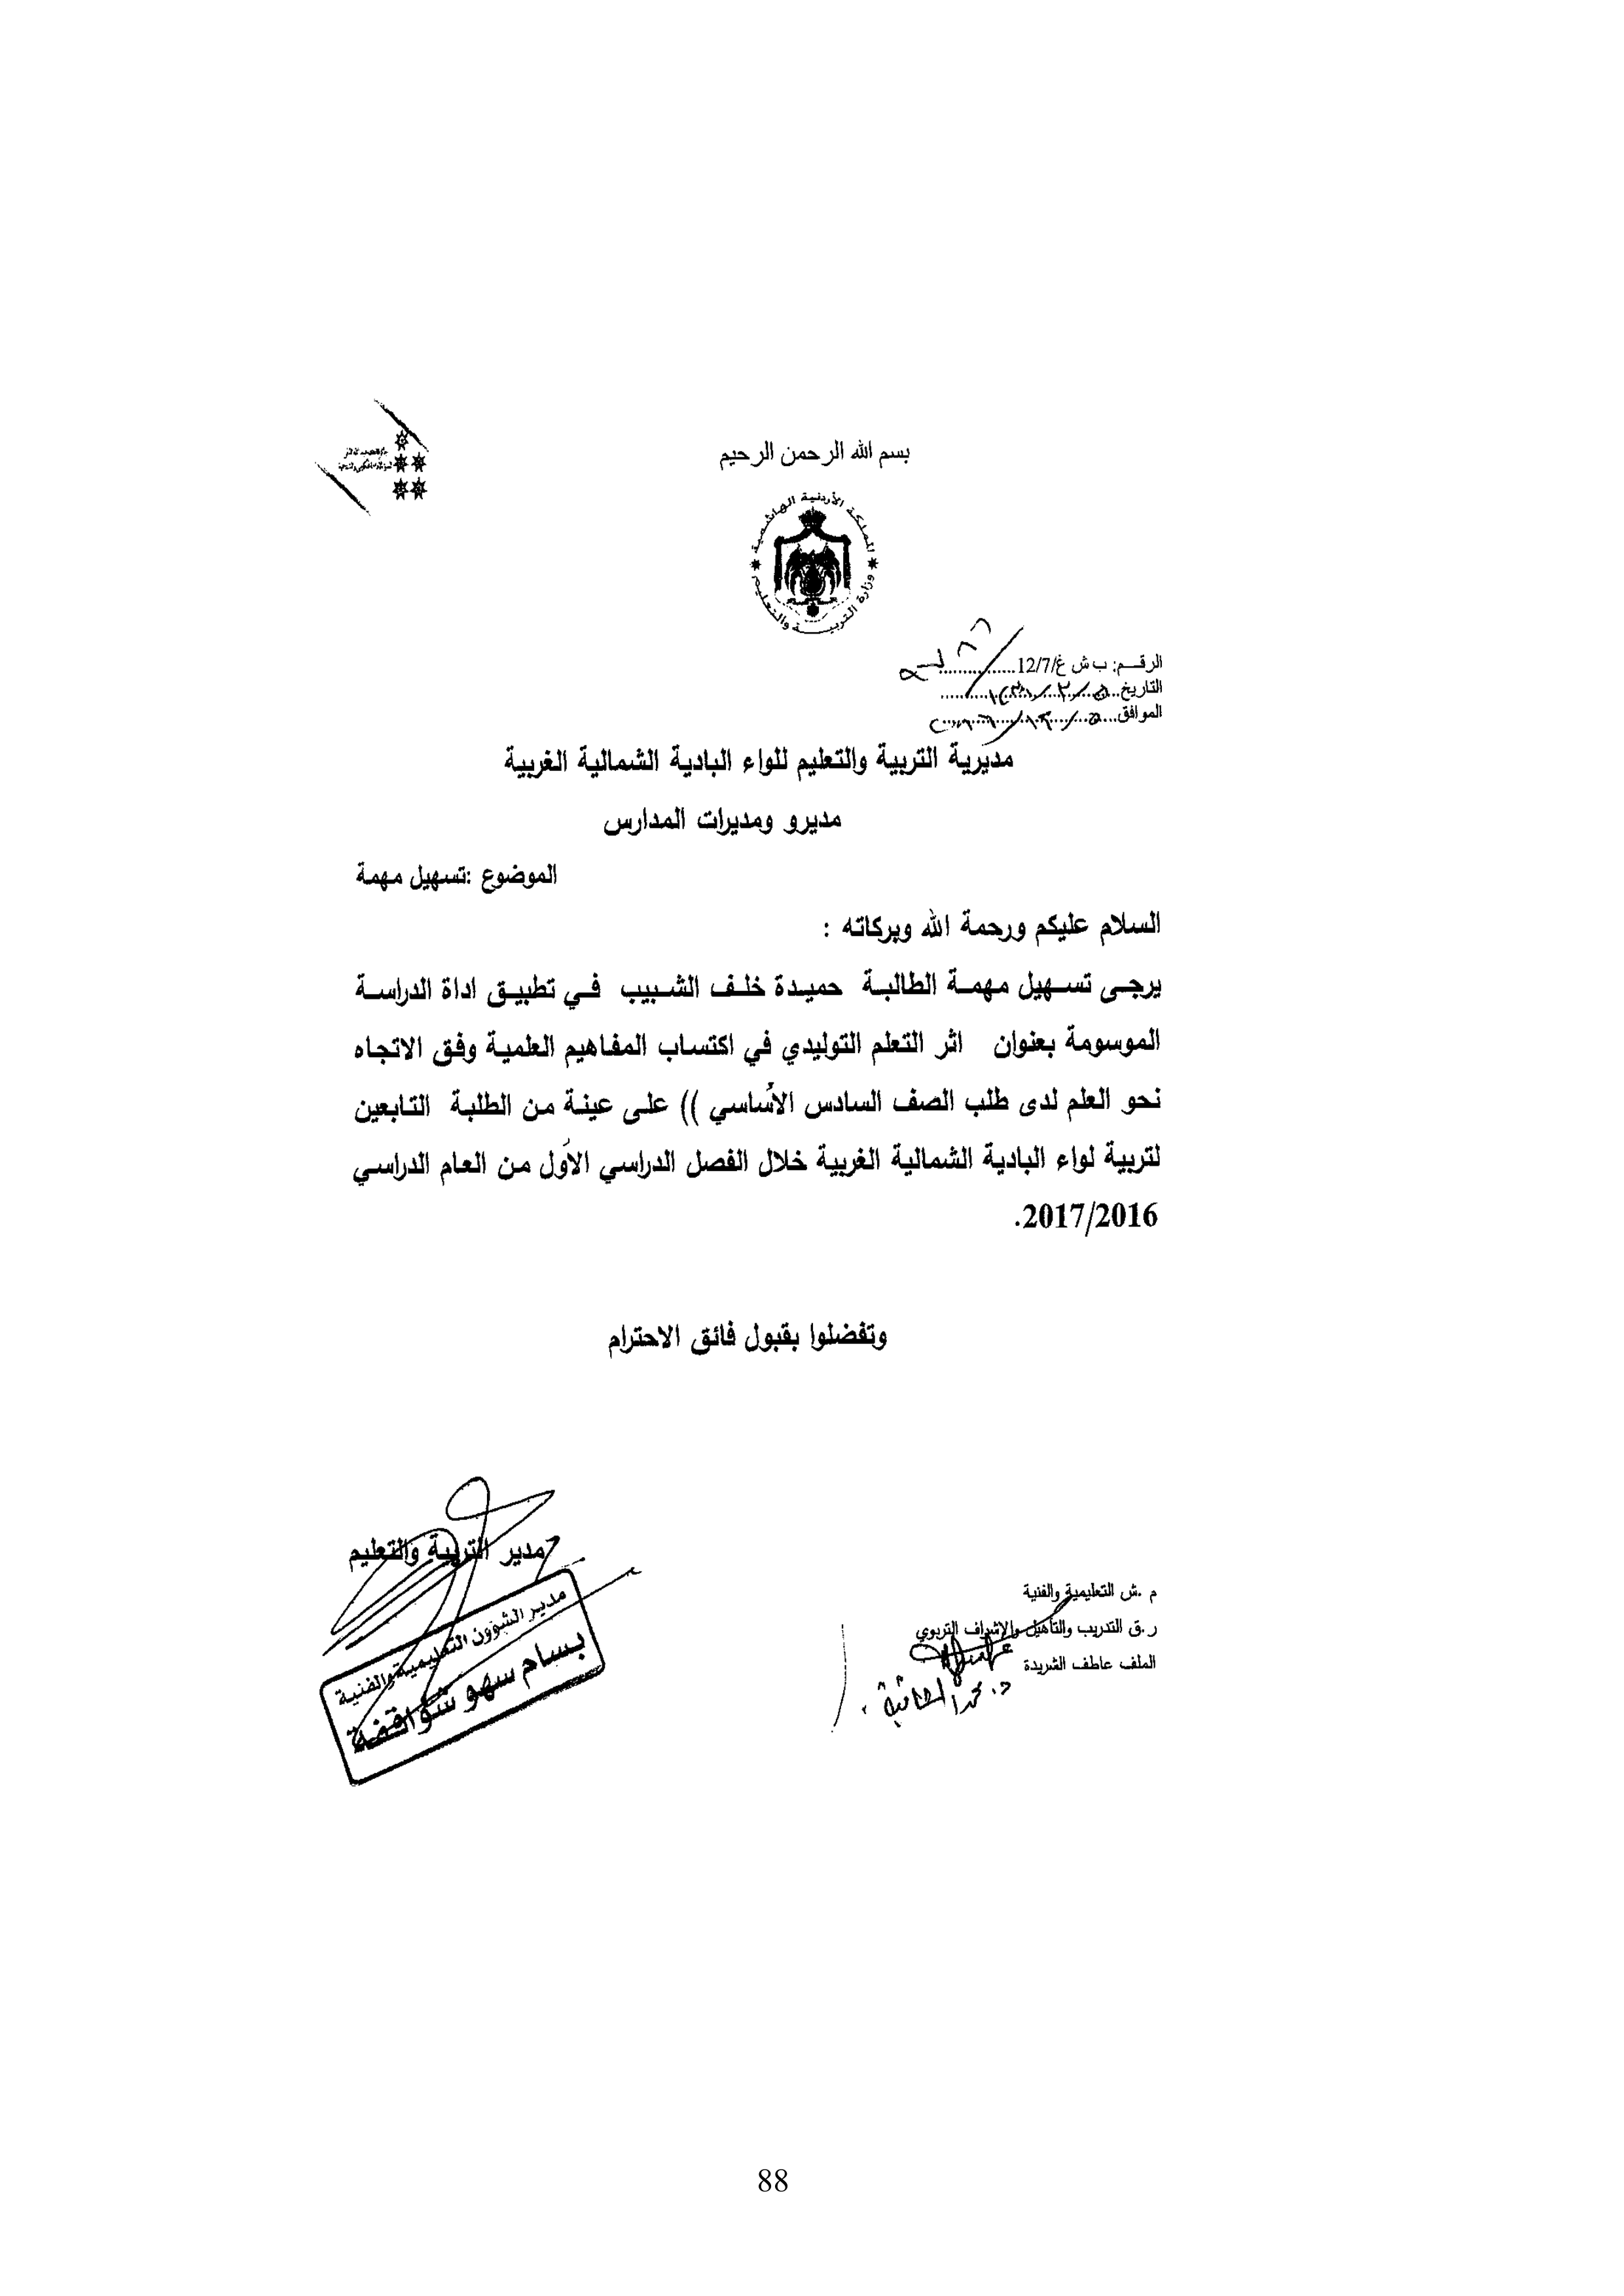 بسم الله الرحمن الرحيم
المملكة الأردنية الهاشمية
وزارة التربية والتعليم
الرقم: ب ش غ/12/7
التاريخ
الموافق
مديرية التربية والتعليم للواء البادية الشمالية الغربية
مديرو ومديرات المدارس
الموضوع :تسهيل مهمة
السلام عليكم ورحمة الله وبركاته :
يرجى تسهيل مهمة الطالبة حميدة خلف الشبيب في تطبيق اداة الدراسة
الموسومة بعنوان اثر التعلم التوليدي في اكتساب المفاهيم العلمية وفق الاتجاه
نحو العلم لدى طلب الصف السادس الأساسي )) على عينة من الطلبة التابعين
لتربية لواء البادية الشمالية الغربية خلال الفصل الدراسي الأول من العام الدراسي
2017/2016.
وتفضلوا بقبول فائق الاحترام
مدير التربية والتعليم
مدير الشؤون التعليمية والفنية
بسام سهو شواقفة
م .ش التعليمية والفنية
ر.ق التدريب والتأهيل والإشراف التربوي
الملف عاطف الشريدة
88